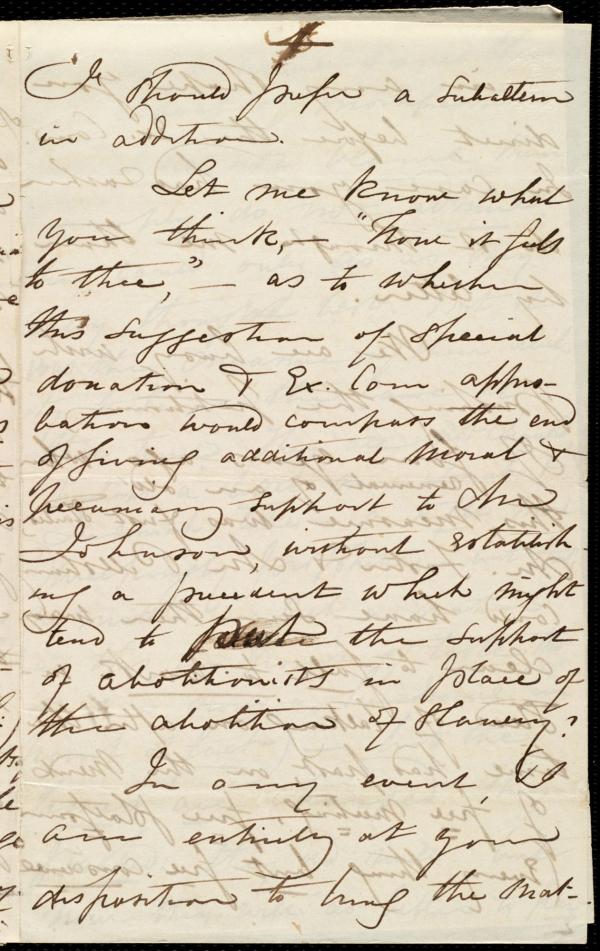 I should prefer a subaltern
in addition.
Let me know what
you think, — "How it feels
to thee," — as to whether
this suggestion of special
donation & Ex. Com appro-
bation would compass the end
of giving additional moral &
pecuniary support to Mr
Johnson, without establish-
ing a precedent which might
tend to the support
of abolitionists in place of
the abolition of Slavery?
In any event, I
am entirely at your
disposition to bring the mat-